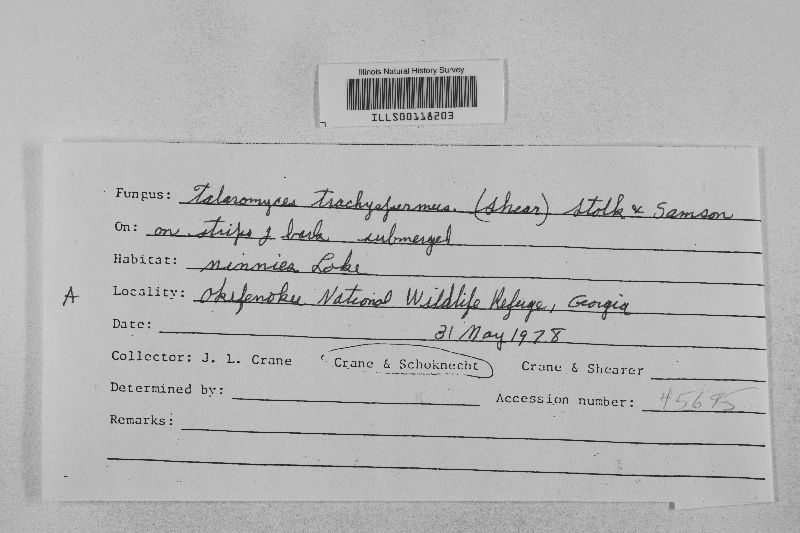 Illinois Natural History Survey
ILLS00118203
Fungus: Talaromyces trachyspermus (Shear) Stolk & Samson
On: on strips of bark submerged
Habitat: minnies Lake
A Locality: Okefenokee National Wildlife Refuge, Georgia
Date: 31 May 1978
Collector: J. L. Crane Crane & Schoknecht Crane & Shearer
Determined by: Accession number: 45695
Remarks: